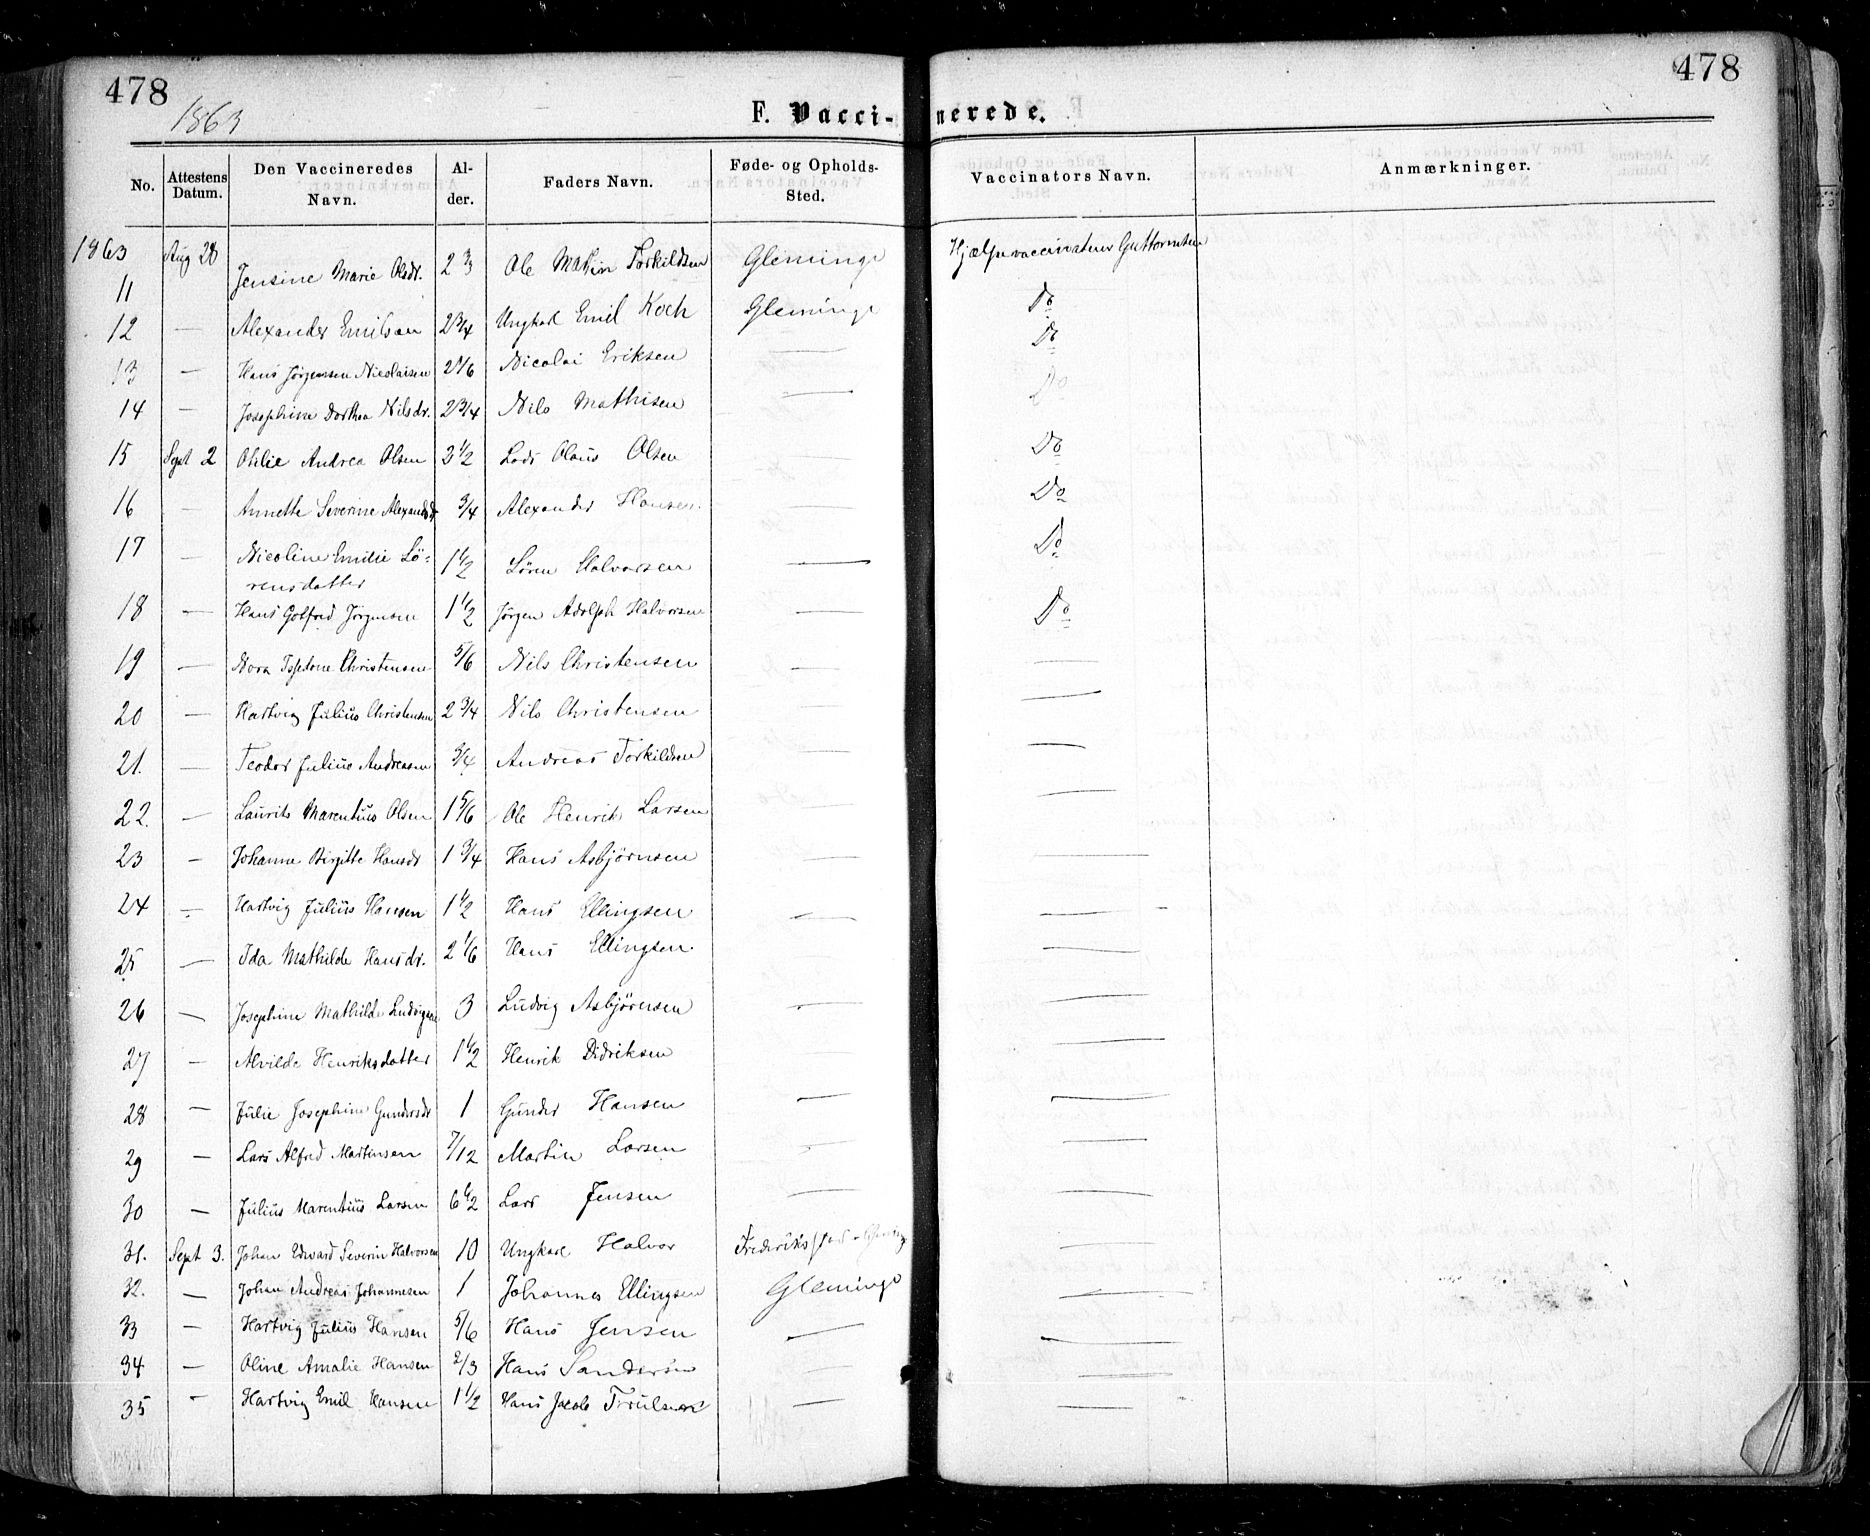 478
478
1863
F. Vacci-nerede.
No. Attestens Datum. Den Vaccineredes Navn. Al-der. Faders Navn. Føde- og Opholds-Sted. Vaccinators Navn. Anmærkninger.
1863 Aug 28
11 Jensine Marie Olsdr. 2 2/3 Ole Martin Torkildsen Glemminge Hjælpevaccinateur Guttormsen
12 — Alexander Emilsen 2 3/4 Ungkarl Emil Koch Glemminge Do
13 — Hans Jörgensen Nicolaisen Nicolai Eriksen — Do
14 — Josephine Dorthea Nilsdr. 2 3/4 Nils Mathisen — Do
15 Sept 2 Andrea Olsen 3 1/2 Lods Olaus Olsen Do
16 — Annette Severine Alexandsdr 3/4 Alexander Hansen Do
17 — Nicoline Emilie Sö-
rensdatter 1 1/2 Sören Halvorsen — Do
18 — Hans Gotfred Jörgensen 1 1/2 Jörgen Adolph Halvorsen — Do
19 — Nora Christensen 5/6 Nils Christensen — —
20 — Hartvig Julius Christensen 2 3/4 Nils Christensen — —
21. — Teodor Julius Andreasen 3/4 Andreas Torkildsen — —
22. — Laurits Marentius Olsen 1 5/6 Ole Henrik Larsen — —
23 — Johanne Birgitte Hansdr 1 3/4 Hans Asbjörnsen — —
24 — Hartvig Julius Hansen 1 1/2 Hans Ellingsen — —
25 — Ida Mathilde Hansdr. 2 1/6 Hans Ellingsen — —
26 — Josephine Mathilde Ludvigsen 3 Ludvig Asbjörnsen — —
27 — Alvilde Henriksdatter 1 1/2 Henrik Didriksen —
28 — Julie Josephine Gundersdr 1 Gunder Hansen — —
29 — Lars Alfred Martinsen 7/12 Martin Larsen — —
30 — Julius Marentius Larsen 6 1/2 Lars Jensen — —
31. Sept 3. Johan Edward Severin Halvorsen 10 Ungkarl Halvor
32. — Johan Andreas Johannesen 1 Johannes Ellingsen Glemminge —
33 — Hartvig Julius Hansen 5/6 Hans Jensen — —
34 — Oline Amalie Hansen 2/3 Hans Sandersen — —
35 — Hartvig Emil Hansen 1 1/2 Hans Jacob Trulsen — —